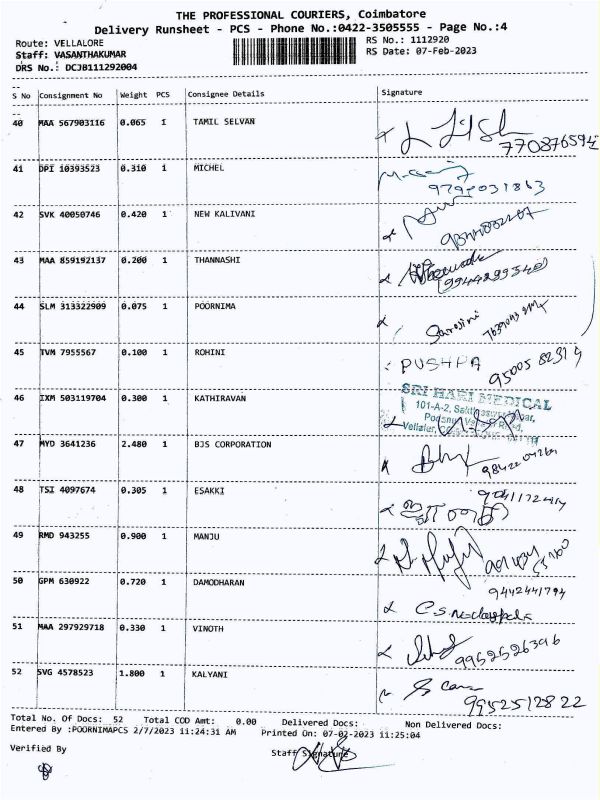 THE PROFESSIONAL COURIERS, Coimbatore
Delivery Runsheet - PCS - Phone No.:0422-3505555 - Page No.:4
Route: VELLALORE RS No.: 1112920
Staff: VASANTHAKUMAR RS Date: 07-Feb-2023
DRS No.: DCJB111292004
S No Consignment No Weight PCS Consignee Details Signature
40 MAA 567903116 0.065 1 TAMIL SELVAN
41 DPI 10393523 0.310 1 MICHEL
42 SVK 40050746 0.420 1 NEW KALIVANI
43 MAA 859192137 0.200 1 THANNASHI
44 SLM 313322909 0.075 1 POORNIMA Sarojini
45 TVM 7955567 0.100 1 ROHINI PUSHPA
46 IXM 503119704 0.300 1 KATHIRAVAN
SRI HARI MEDICAL
101-A-2,
47 MYD 3641236 2.480 1 BJS CORPORATION
48 TSI 4097674 0.305 1 ESAKKI
49 RMD 943255 0.900 1 MANJU
50 GPM 630922 0.720 1 DAMODHARAN 9442441794
51 MAA 297929718 0.330 1 VINOTH 9952526396
52 SVG 4578523 1.800 1 KALYANI 9952512822
Total No. Of Docs: 52 Total COD Amt: 0.00 Delivered Docs: Non Delivered Docs:
Entered By :POORNIMAPCS 2/7/2023 11:24:31 AM Printed On: 07-02-2023 11:25:04
Verified By Staff Signature